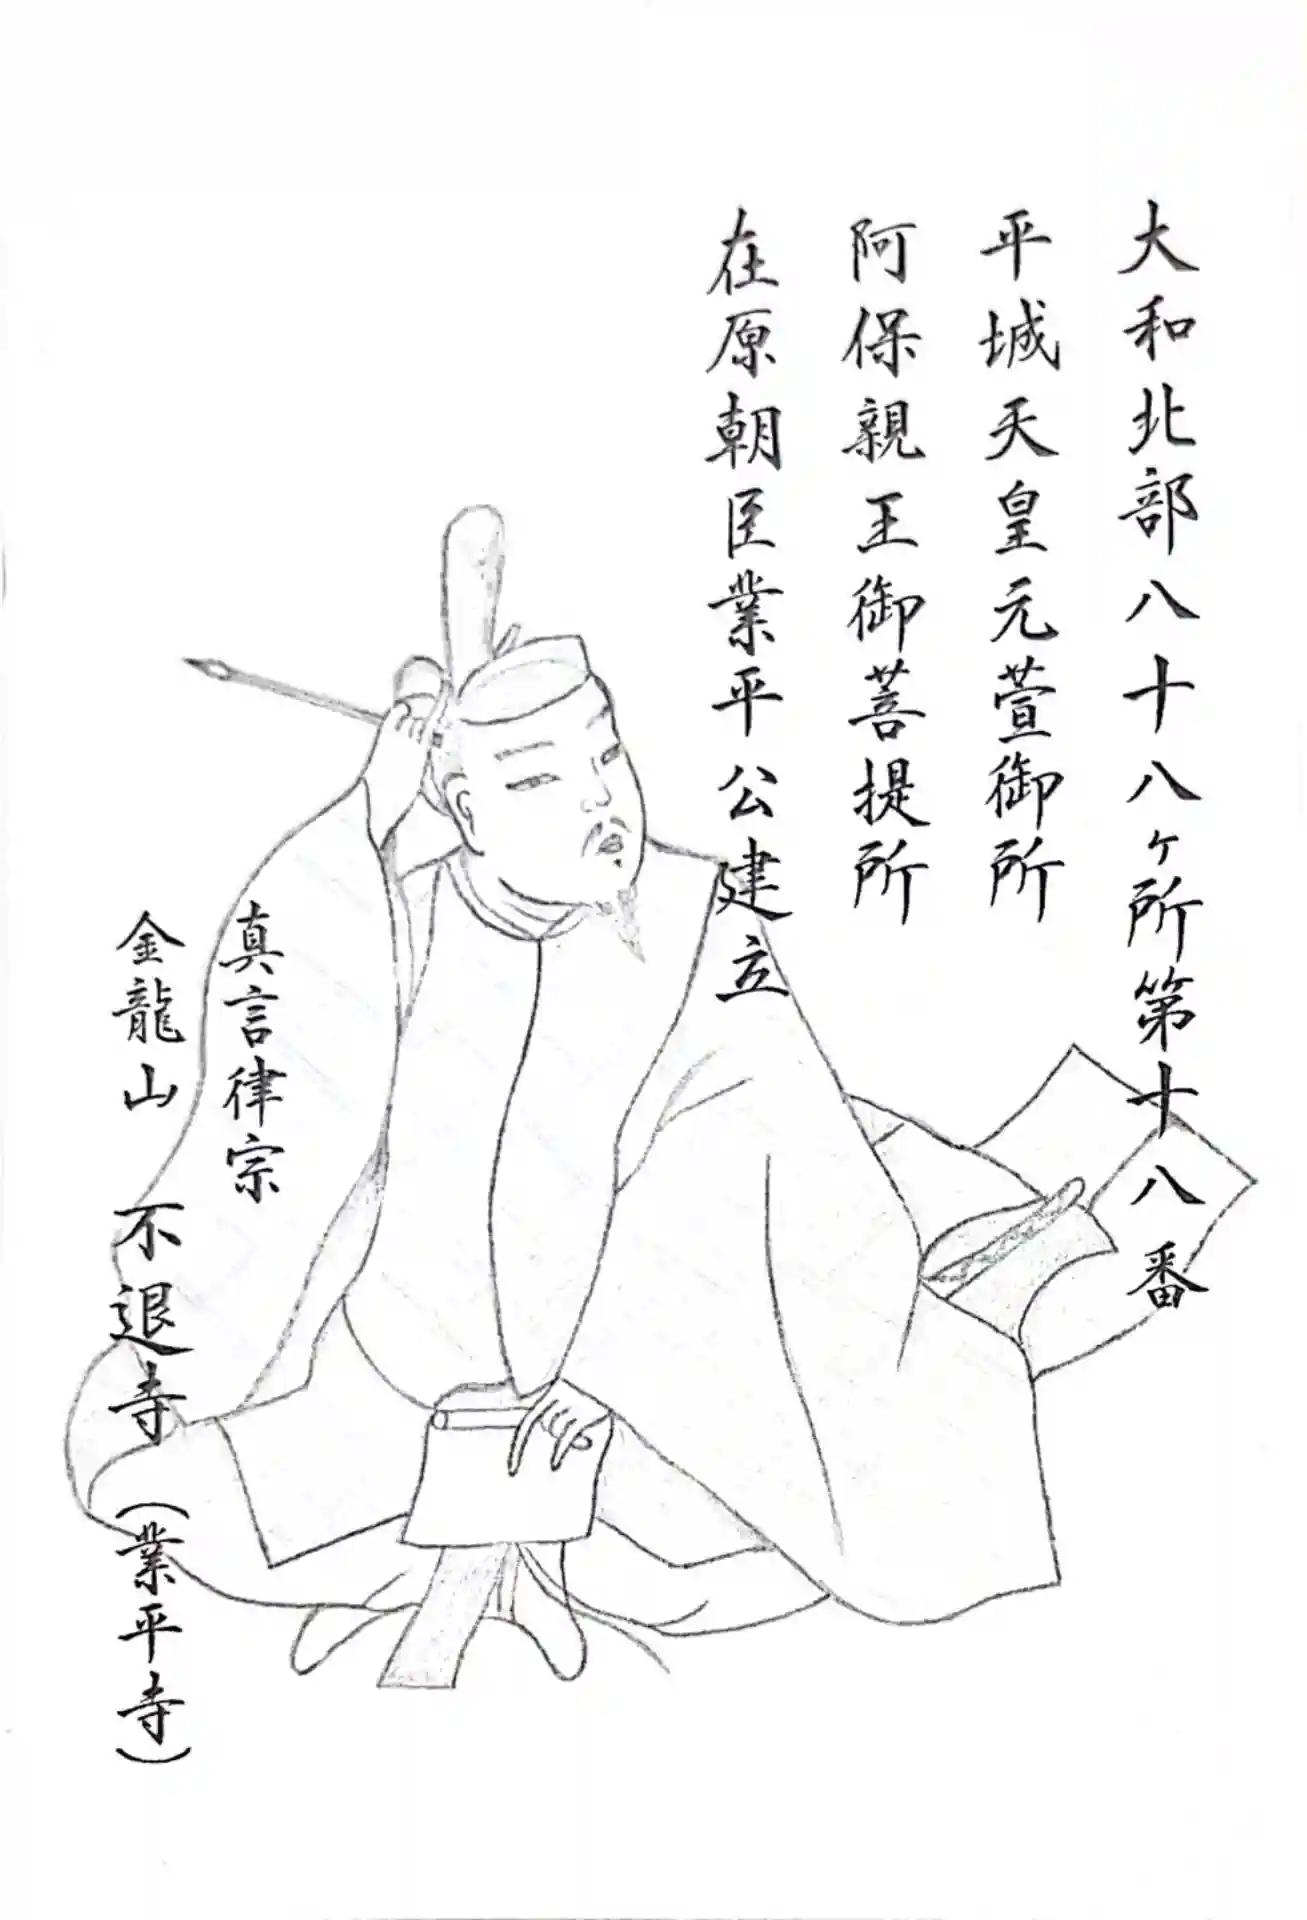 大和北部八十八ヶ所第十八番
平城天皇元萱御所
阿保親王御菩提所
在原朝臣業平公建立
真言律宗
金龍山 不退寺(業平寺)